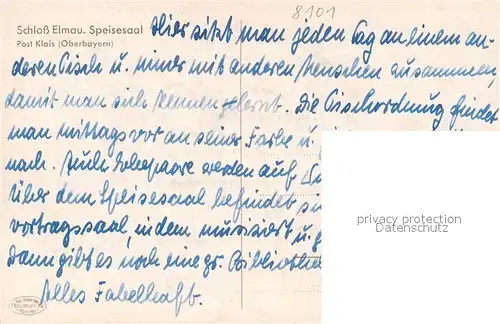 8101
Schloß Elmau. Speisesaal
Post Klais (Oberbayern)
Hier sitzt man jeden Tag an einem an-
deren Tisch u. immer mit anderen Menschen zusammen,
damit man sich kennen gelernt. Die Tischordnung findet
man mittags vor an seiner Farbe u.
nach. Auch Ehepaare werden auf
Über dem Speisesaal befindet si
vortragssaal, in dem musiziert u. g
Dann gibt es noch eine gr. Biblioth
Alles Fabelhaft.
privacy protection
Datenschutz